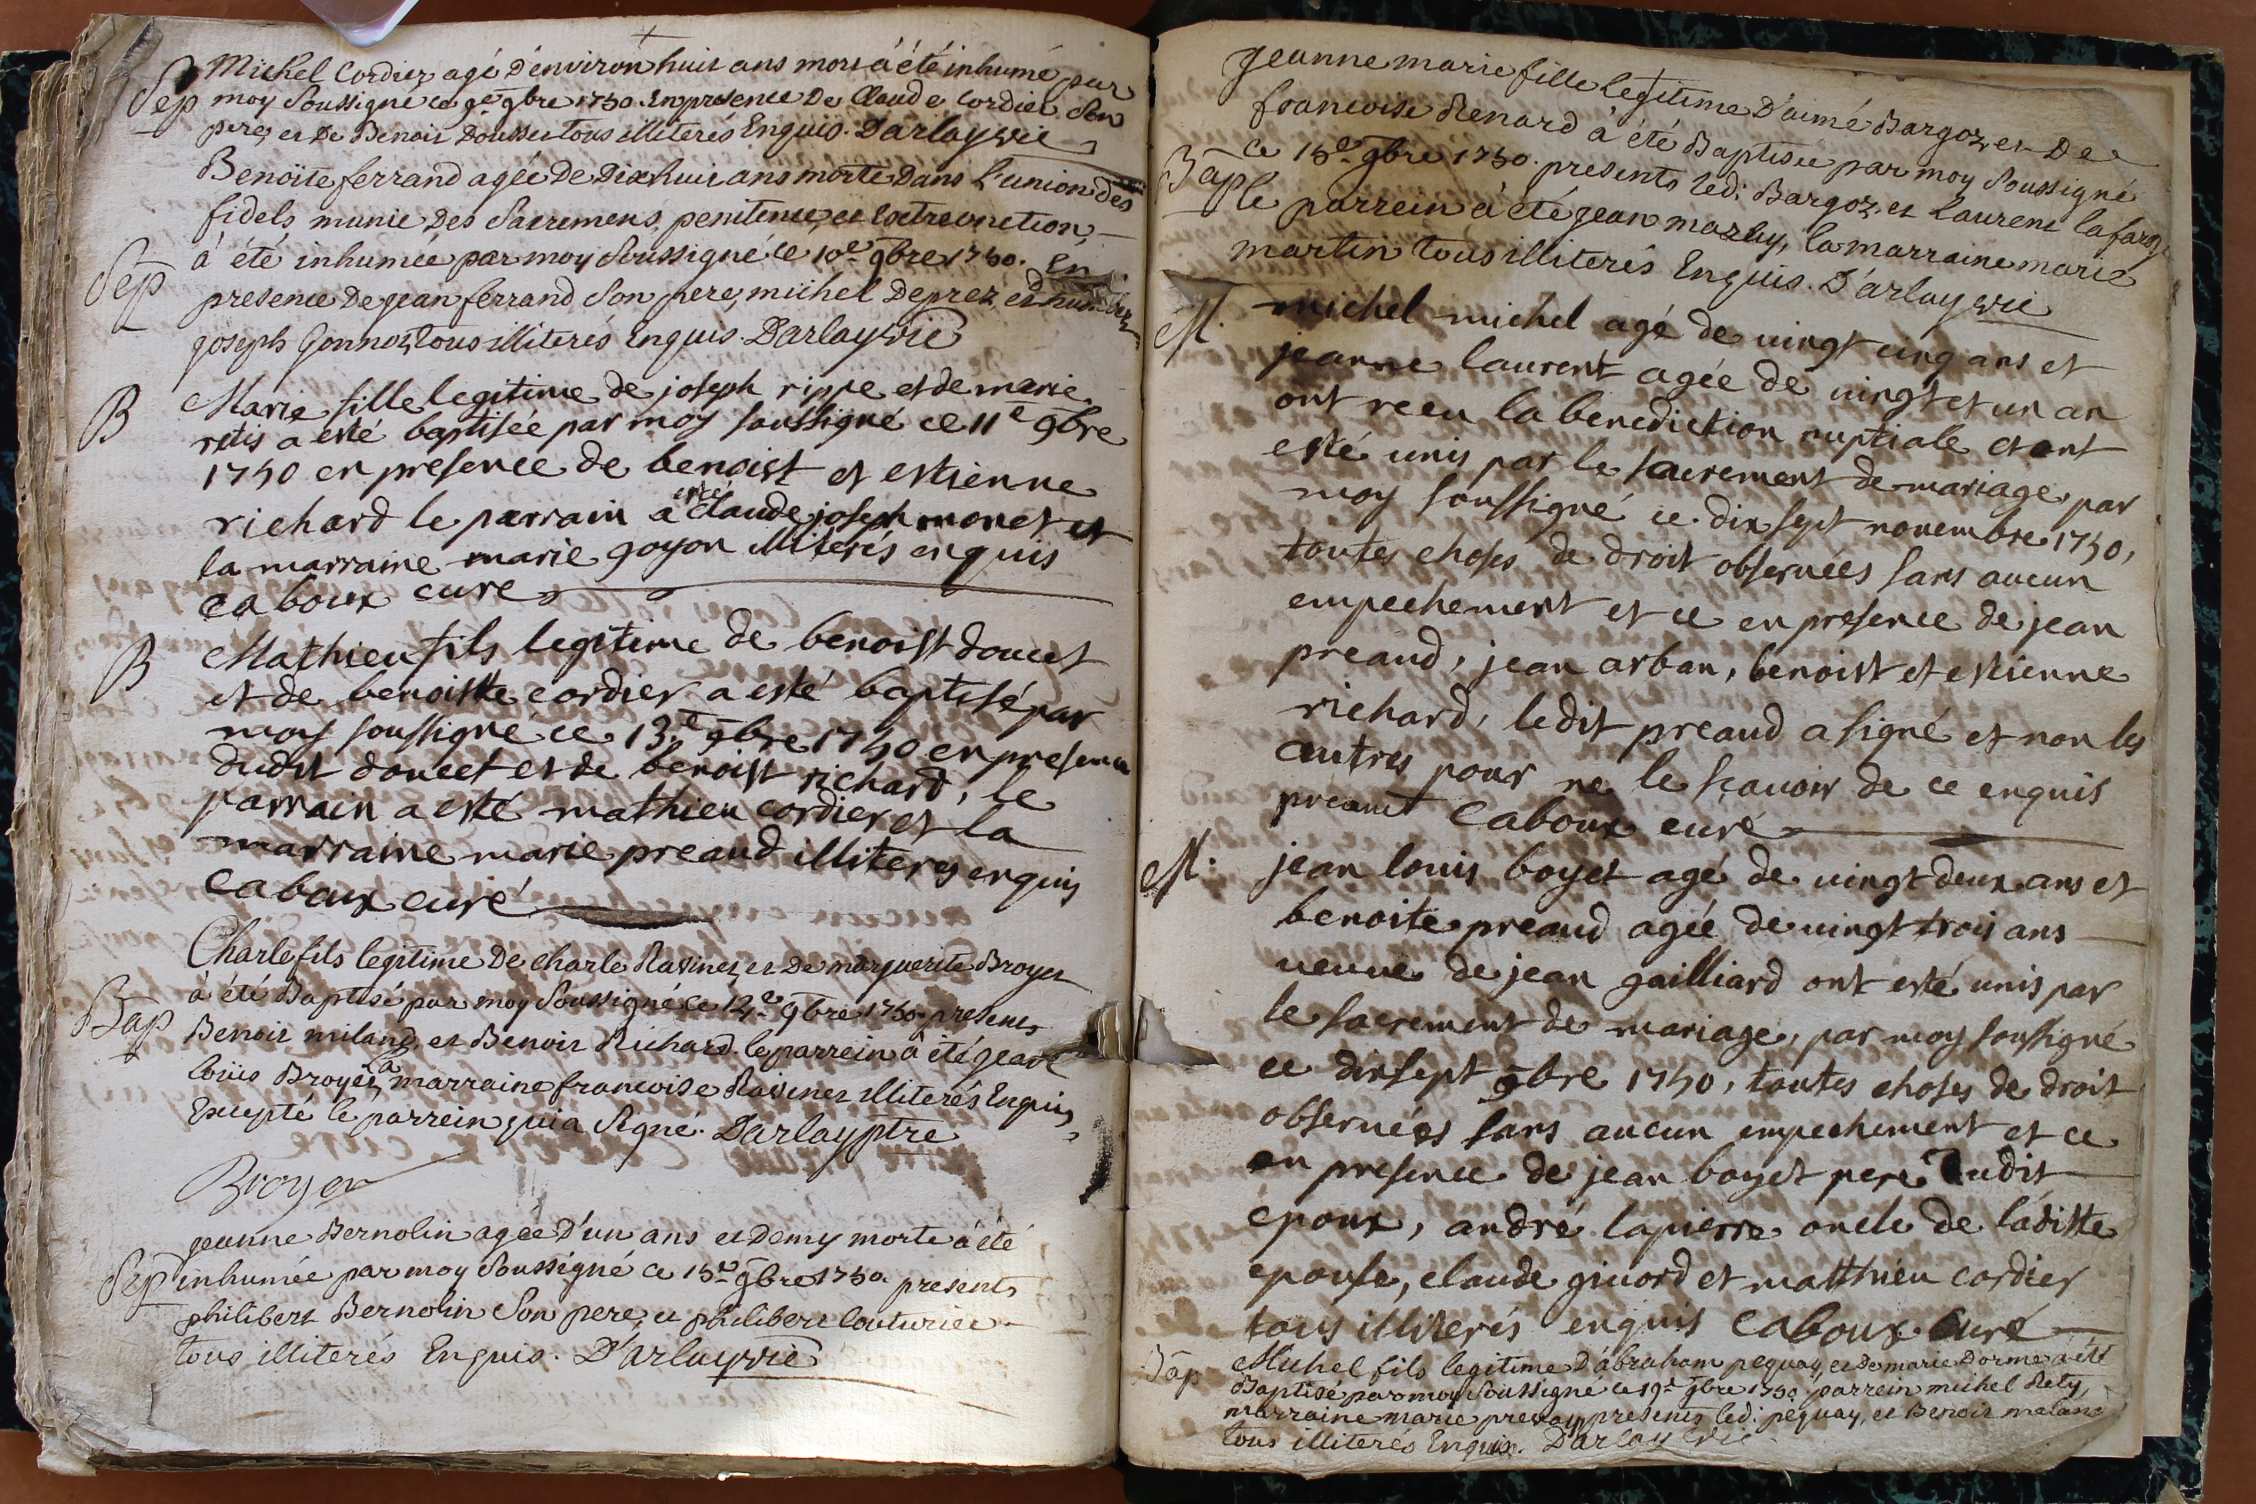 Michel Cordier, agé D'environ huit ans mort à été inhumé par
Sep moy Soussigné ce 9e 9bre 1750. En presence De Claude Cordier Son
pere, et De Benoit Dousset tous illiterés Enquis. Darlay vic
Benoite ferrand agée De Dix huit ans morte Dans l'union des
fidels, munie Des Sacremens, penitence, et Extreonction,
à été inhumée par moy Soussigné ce 10e 9bre 1750. En
Sep
presence De jean ferrand Son pere, michel Deprez,
joseph Gonnoz, tous illiterés Enquis. Darlay vic
B Marie fille legitime de joseph rippe et de marie
retis a esté baptisée par moy soussigné ce 11e 9bre
1750 en presence de benoist et estienne
richard le parrain a esté claude joseph monet et
la marraine marie goyon illiterés enquis
Caboux curé
B Mathieu fils legitime de benoist doucet
et de benoistte cordier a esté baptisé par
moy soussigné ce 13e 9bre 1750 en presence
dudit doucet et de benoist richard, le
parrain a esté mathieu cordier et la
marraine marie preaud illiterés enquis
Caboux curé
Charle fils legitime De charle Ravinet, et De marguerite Broyer
à été Baptisé par moy Soussigné ce 14e 9bre 1750. presents
Bap Benoit miland, et Benoit Richard. le parrein à été jean
louis Broyer, la marraine francoise Ravinet illiterés Enquis,
Excepté le parrein qui a Signé. Darlay ptre
Broyer
jeanne Bernolin agée D'un ans et Demy morte à été
Sep inhumée par moy Soussigné ce 15e 9bre 1750. presents
philibert Bernolin Son pere, et philibert Couturier
tous illiterés Enquis. D'arlay vic
jeanne marie fille legitime D'aimé Bargoz, et De
francoise Renard à été Baptisée par moy Soussigné
ce 15e 9bre 1750. presents led: Bargoz et laurent lafarge
Bap le parrein à été jean mazuy, la marraine marie
martin tous illiterés Enquis. D'arlay vic
M. michel michel agé de vingt cinq ans et
jeanne laurent agée de vingt et un an
ont receu la benediction nuptiale et ont
esté unis par le sacrement de mariage par
moy soussigné ce dix sept novembre 1750,
toutes choses de droit observées sans aucun
empechement et ce en presence de jean
preaud, jean arban, benoist et estienne
richard, ledit preaud a signé et non les
autres pour ne le sçavoir de ce enquis
preaut Caboux curé
M. jean louis boyet agé de vingt deux ans et
benoite preaud agée de vingt trois ans
veuve de jean gailliard ont esté unis par
le sacrement de mariage, par moy soussigné
ce dix sept 9bre 1750, toutes choses de droit
observées sans aucun empechement et ce
en presence de jean boyet pere dudit
époux, andré lapierre oncle de laditte
epouse, claude givord et matthieu cordier
tous illiterés enquis Caboux curé
Bap Michel fils legitime D'abraham pequay, et De marie Dorme a été
Baptisé par moy Soussigné ce 19e 9bre 1750. parrein michel Rety,
marraine marie presents led: pequay, et Benoit meland
tous illiterés Enquis. D'arlay vic